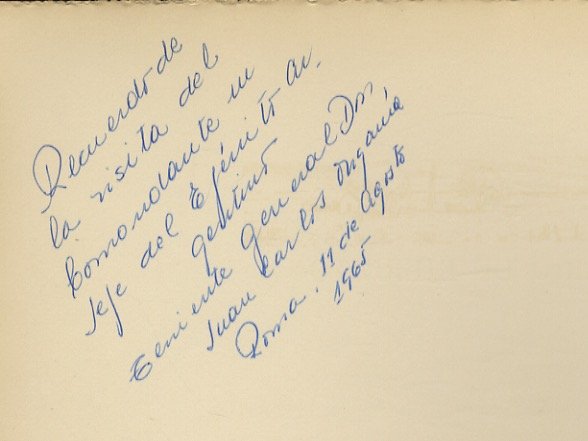 Recuerdo de
la visita del
Comandante en
Jefe del Ejército Ar-
gentino
Teniente General Don,
Juan Carlos Ongania
Roma. 11 de Agosto
1965